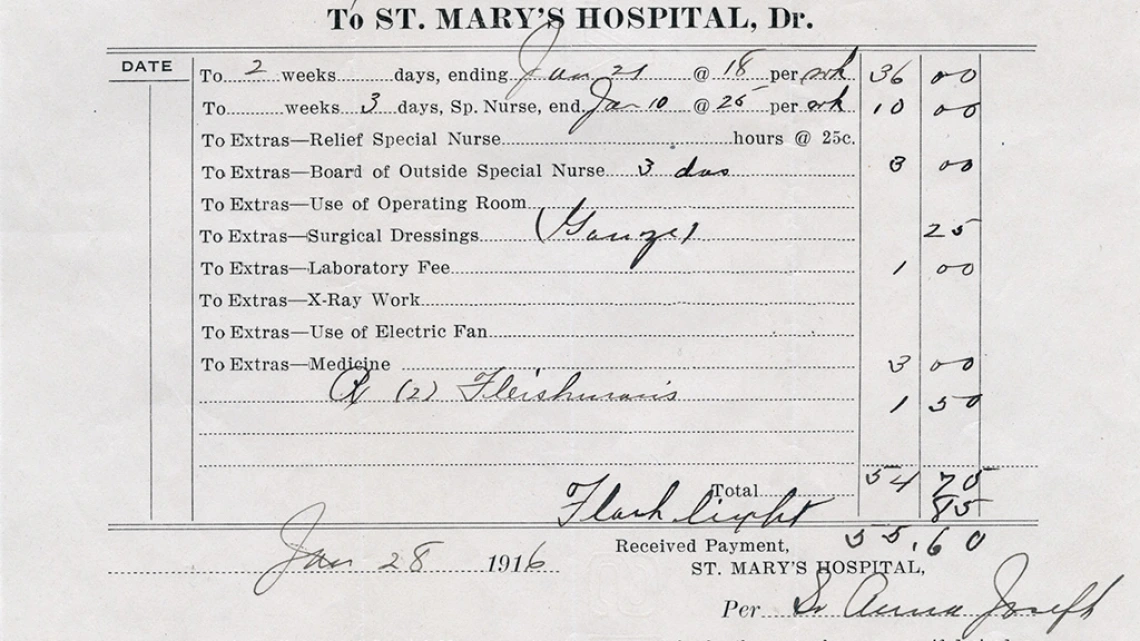 To ST. MARY'S HOSPITAL, Dr.
DATE
To 2 weeks days, ending Jan 21 @ 18 per wk 36 00
To weeks 3 days, Sp. Nurse, end. Jan 10 @ 25 per wk 10 00
To Extras—Relief Special Nurse hours @ 25c.
To Extras—Board of Outside Special Nurse 3 das 3 00
To Extras—Use of Operating Room
To Extras—Surgical Dressings (Gauze) 25
To Extras—Laboratory Fee 1 00
To Extras—X-Ray Work
To Extras—Use of Electric Fan
To Extras—Medicine 3 00
(2) Fleishman's 1 50
Total 54 75
Flash light 85
Received Payment, 55.60
Jan 28 1916
ST. MARY'S HOSPITAL,
Per Sr Anna Joseph